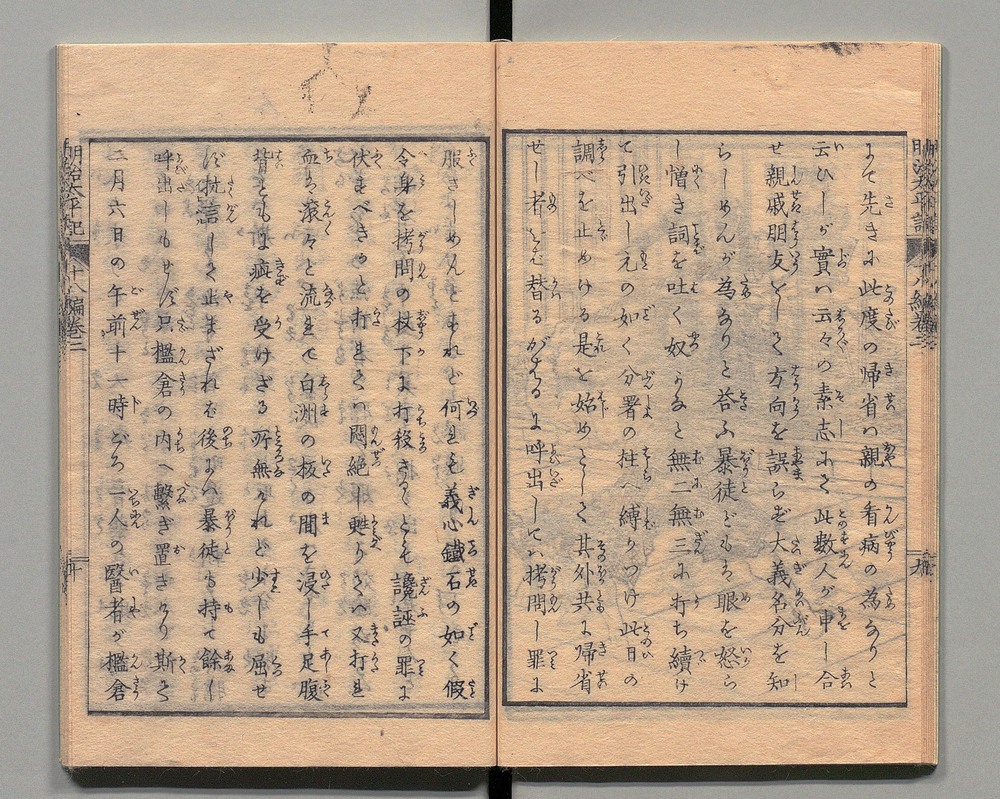 よて先きに此度の帰省ハ親の看病の為なりと
云ひしが實ハ云々の素志にて此數人が申し合
せ親戚朋友をして方向を誤らせず大義名分を知
らしめんが為なりと荅ふ暴徒どもハ眼を怒ら
し憎き詞を吐く奴かなと無二無三に打ち續け
て引出し元の如く分署の柱へ縛りつけ此日の
調べを止めける是を始めとして其外共に帰省
せし者を替る〴〵に呼出してハ拷問し罪に
服さしめんとすれど何れも義心鐵石の如く假
令身を拷問の杖下に打殺さるゝとも讒誣の罪に
伏すべきかと打れてハ悶絶し甦りてハ又打れ
血ハ滚々と流れて白洲の板の間を浸し手足腹
背ともに疵を受けざる所無けれど少しも屈せ
ず抗言して止まざれバ後にハ暴徒も持て餘し
呼出しもせず只檻倉の内へ繋ぎ置きけり斯て
二月六日の午前十一時ごろ一人の醫者が檻倉
明治太平記
十八編巻二